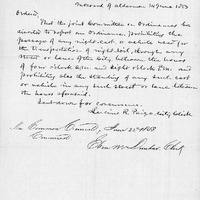 In Board of Aldermen 14 June 1883
Ordered,
That the joint Committee on Ordinances be
directed to report an Ordinance prohibiting the
passage of any night cart, a vehicle used for
the transportation of night soil, through any
street or lanes of the city between the hours
of four o'clock A.M. and eight o'clock P.M. and
prohibiting also the standing of any such cart
or vehicle in any such street or lane between
the hours aforesaid.
Sent down for concurrence.
Lucius R. Paige, City Clerk
In Common Council, June 1853
Concurred
Clerk